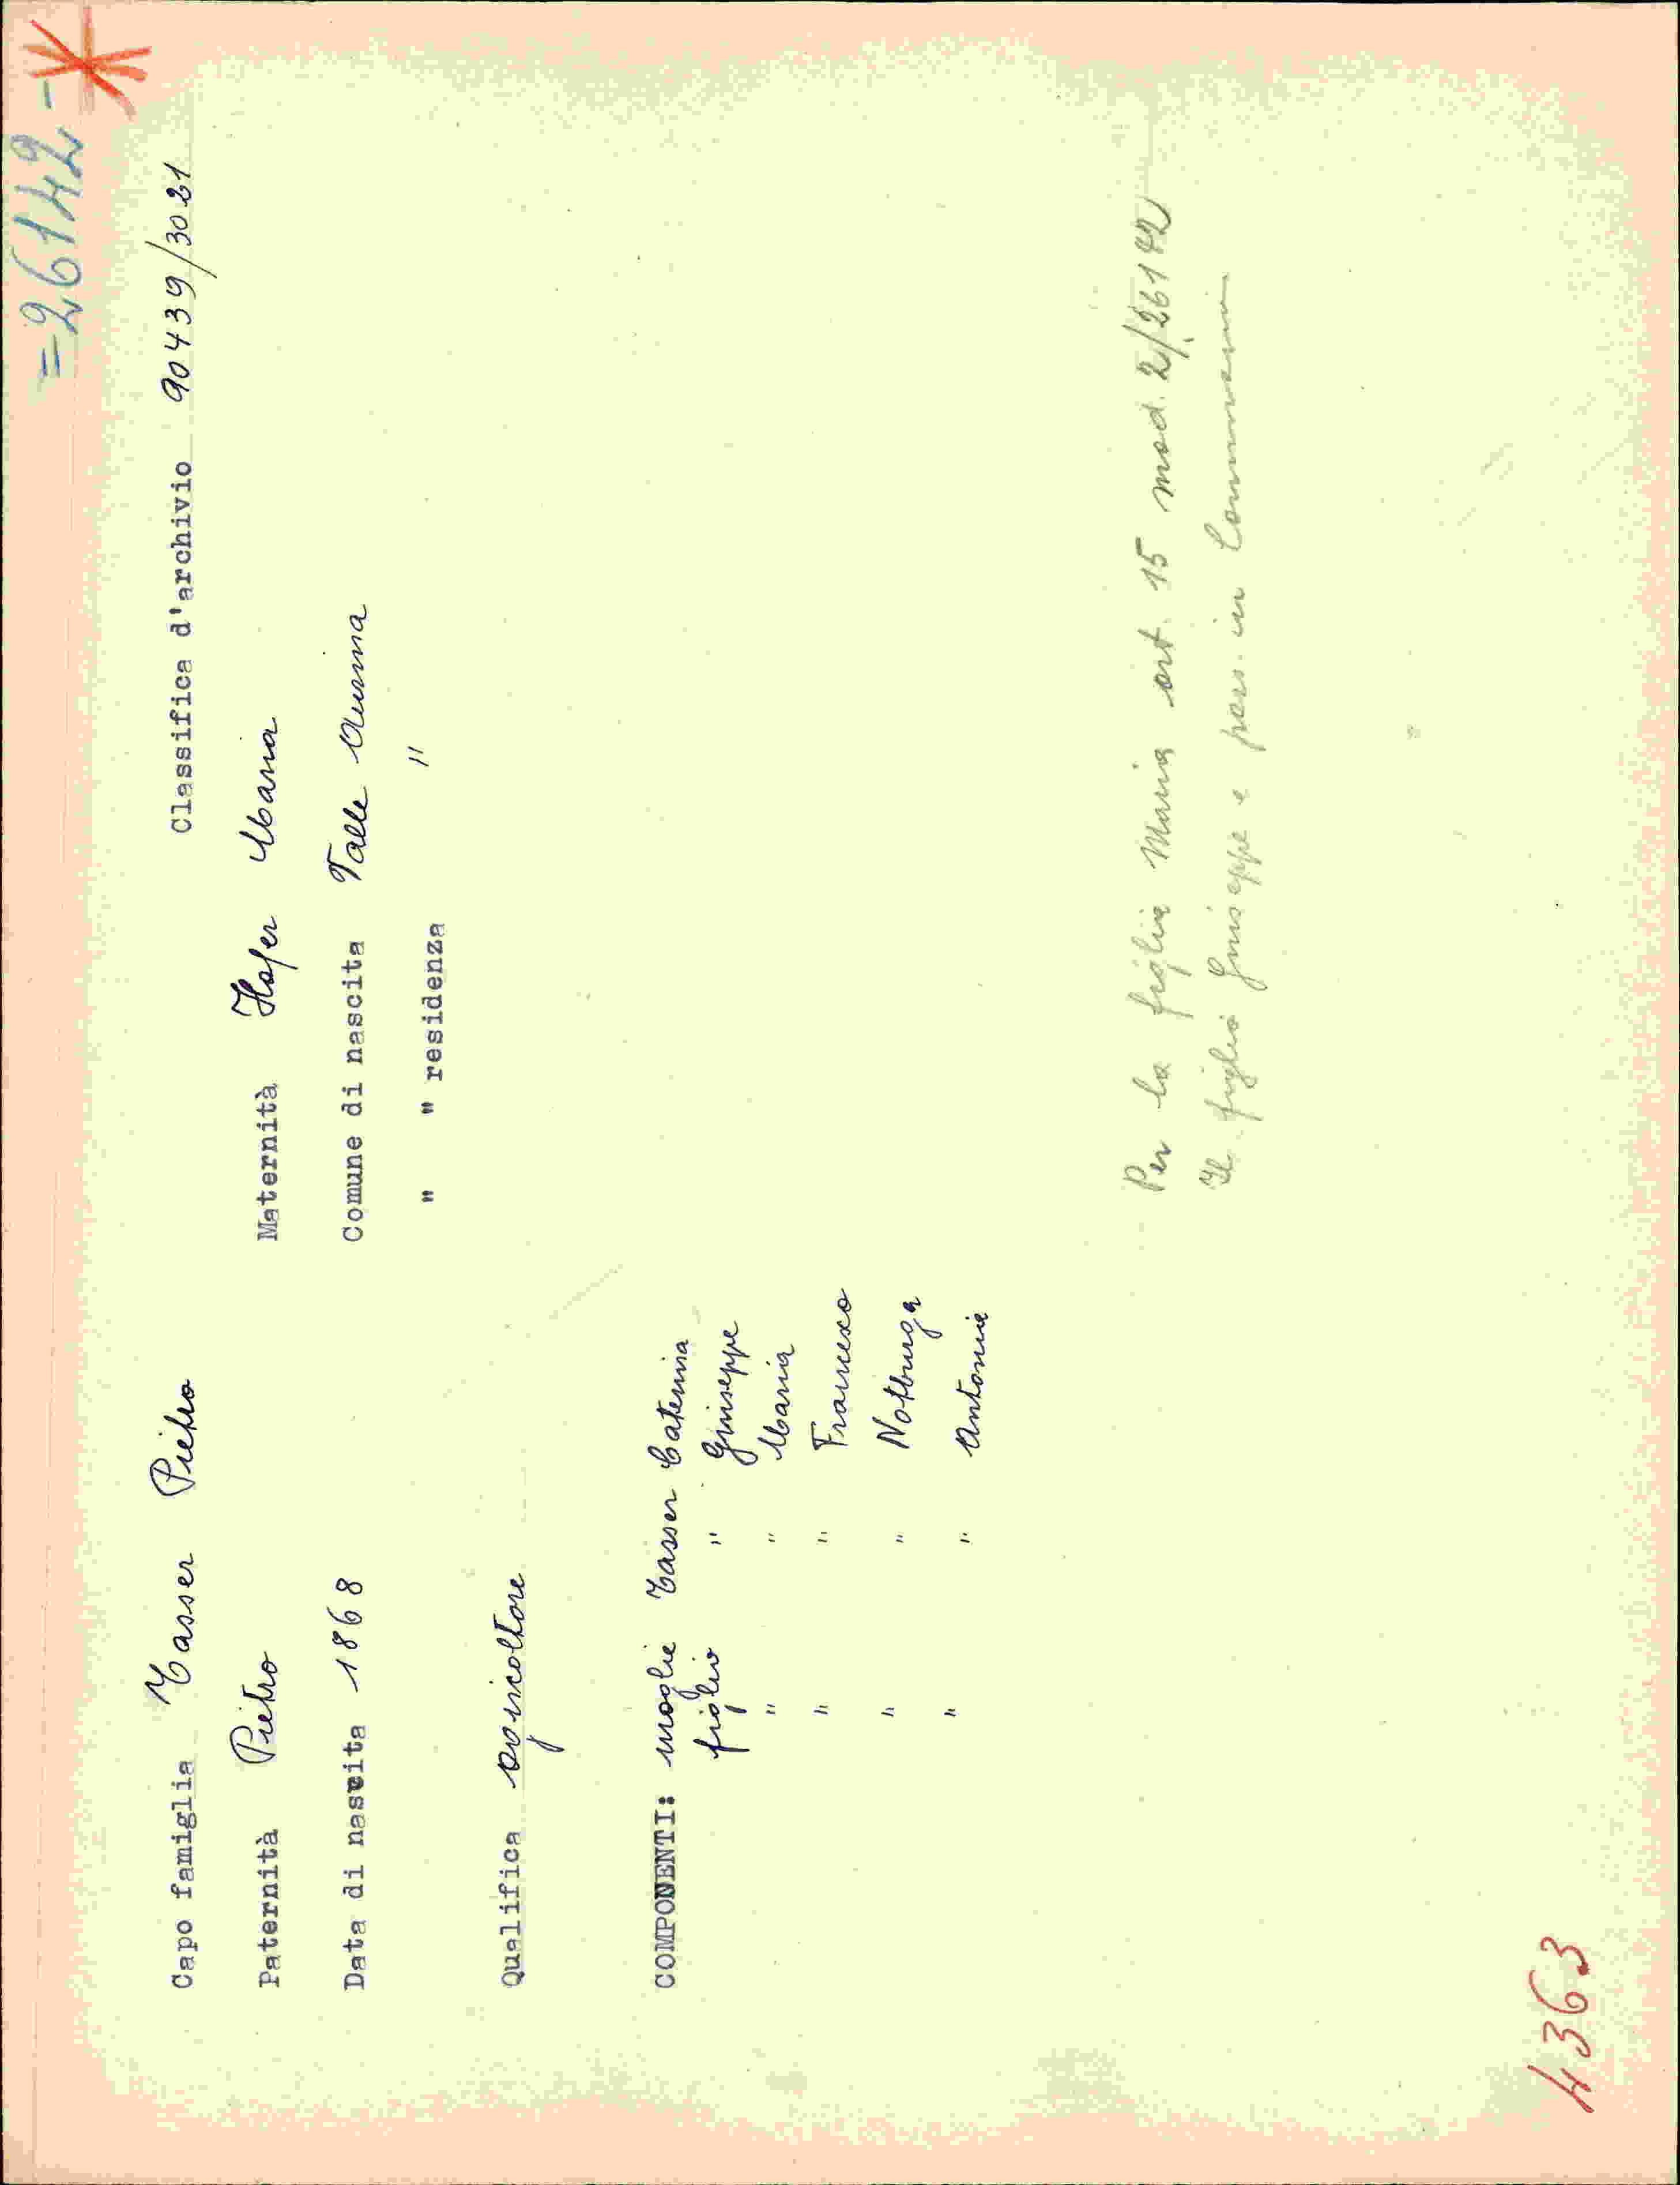 =26142-
Capo famiglia Tasser Pietro Classifica d'archivio 90439/3021
Paternità Pietro Maternità Hofer Maria
Data di nascita 1868 Comune di nascita Valle Aurina
" " residenza "
Qualifica agricoltore
COMPONENTI: moglie Tasser Caterina
figlio " Giuseppe
" " Maria
" " Francesco
" " Notburga
" " Antonia
Per la figlia Maria art. 15 mod. 2/26142
Il figlio Giuseppe e pers. in
4363